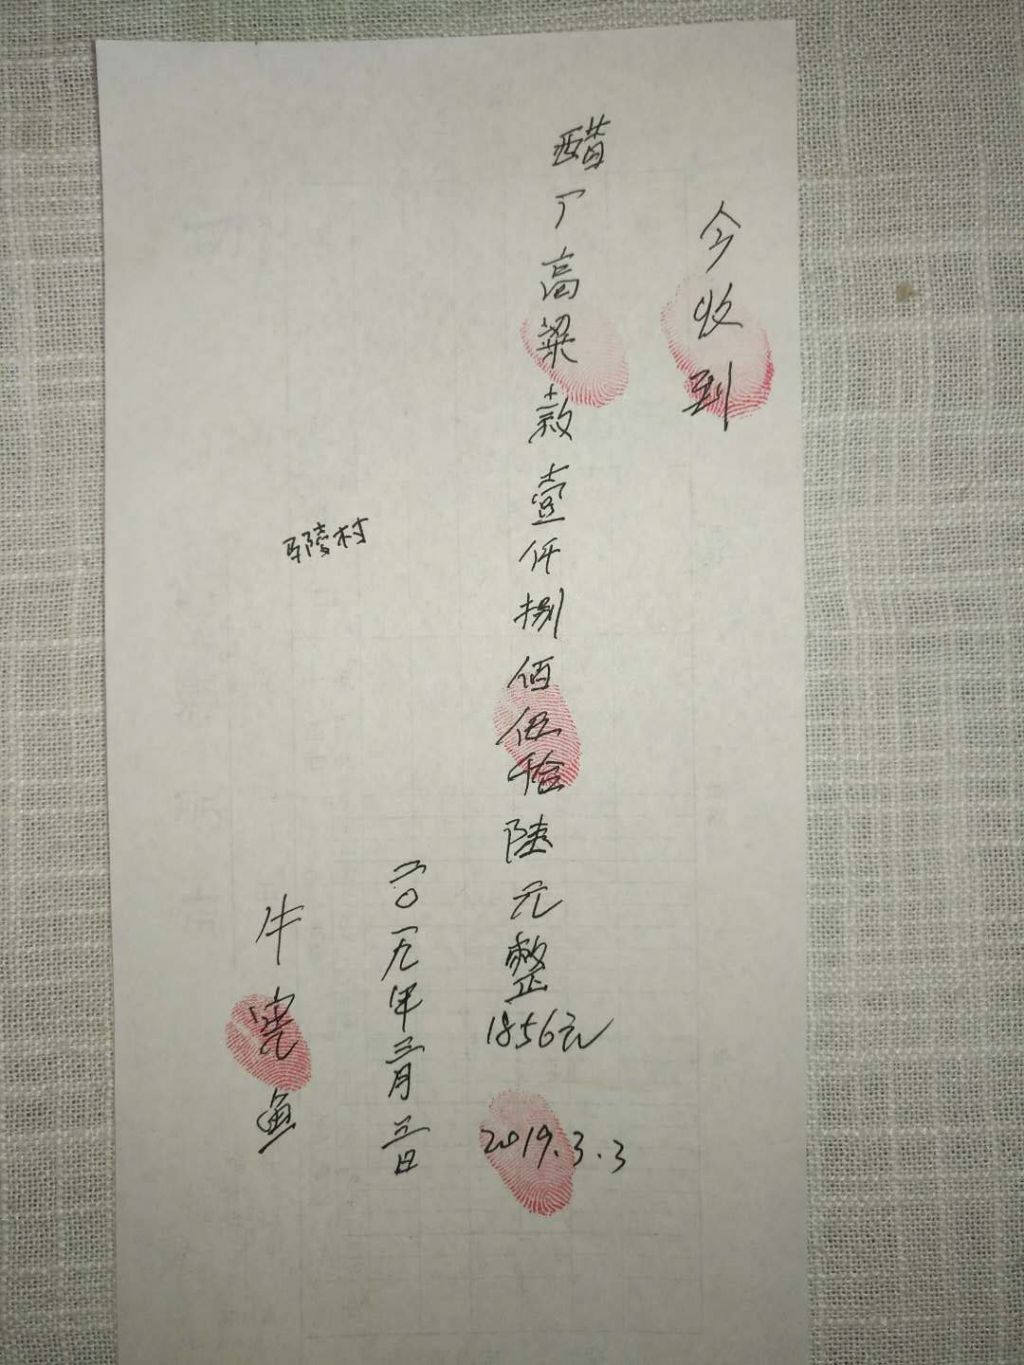 今收到
醋厂高粱款壹仟捌佰伍拾陆元整
1856元
2019.3.3
二〇一九年三月三日
陵村
牛宪鱼